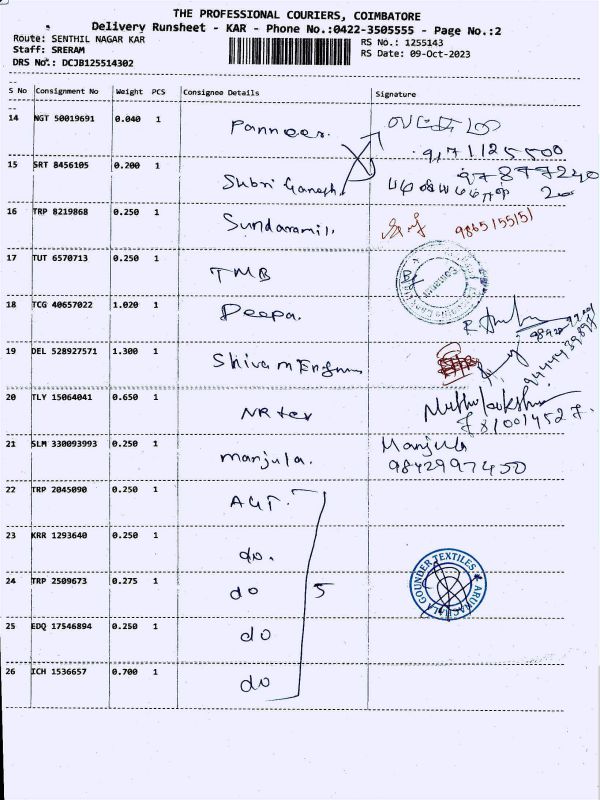 THE PROFESSIONAL COURIERS, COIMBATORE
Delivery Runsheet - KAR - Phone No.:0422-3505555 - Page No.:2
Route: SENTHIL NAGAR KAR
RS No.: 1255143
Staff: SRERAM
RS Date: 09-Oct-2023
DRS No.: DCJB125514302
S No Consignment No Weight PCS Consignee Details Signature
14 NGT 50019691 0.040 1 Panneer.
15 SRT 8456105 0.200 1 Subri Ganesh.
16 TRP 8219868 0.250 1
17 TUT 6570713 0.250 1 TMB
18 TCG 40657022 1.020 1 Deepa.
19 DEL 528927571 1.300 1 Shivam
20 TLY 15064041 0.650 1 NR tex
21 SLM 330093993 0.250 1 manjula. Manjula
9842997450
22 TRP 2045090 0.250 1 AGT.
23 KRR 1293640 0.250 1 do.
24 TRP 2509673 0.275 1 do 5 ARUNACHALA GOUNDER TEXTILES
25 EDQ 17546894 0.250 1 do
26 ICH 1536657 0.700 1 do